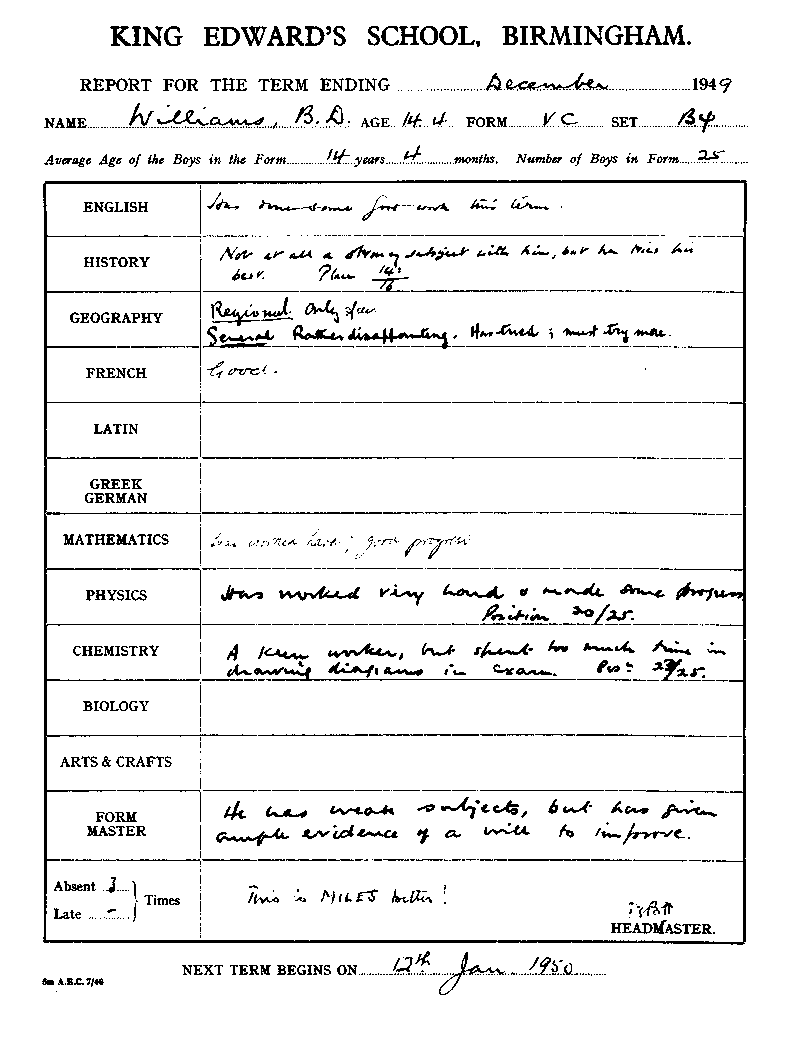 KING EDWARD'S SCHOOL, BIRMINGHAM.
REPORT FOR THE TERM ENDING December 1949
NAME Williams, B.D. AGE 14 4 FORM VC SET B4
Average Age of the Boys in the Form 14 years 4 months. Number of Boys in Form 25
ENGLISH Has done some good work this term.
HISTORY Not at all a strong subject with him, but he tries his
best. Place 14/16
GEOGRAPHY Regional Only fair
General Rather disappointing. Has tried; must try more.
FRENCH Good.
LATIN
GREEK
GERMAN
MATHEMATICS Has worked hard; good progress
PHYSICS Has worked very hard & made some progress
Position 20/25.
CHEMISTRY A keen worker, but spent too much time in
drawing diagrams in exam. Posn 23/25.
BIOLOGY
ARTS & CRAFTS
FORM MASTER He has weak subjects, but has given
ample evidence of a will to improve.
Absent 3 Times
Late -
This is MILES better!
HEADMASTER.
NEXT TERM BEGINS ON 12th Jan. 1950
5m A.E.C. 7/46